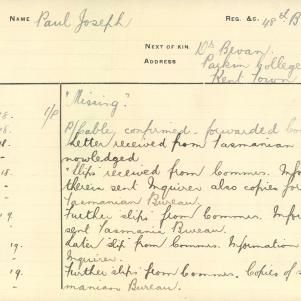 NAME Paul Joseph REG. &C. 48th B
NEXT OF KIN Ds Bevan.
ADDRESS Parkin College
Kent Town
"Missing".
8. 1/P P/Cable, confirmed. forwarded
8. Letter received from Tasmanian
nowledged
8. "Slips" received from Commrs. Infor
- therein sent Inquirer also copies for
- Tasmanian Bureau.
19. Further slips from Commrs. Infor
- sent Tasmania Bureau.
19. Later slip from Commrs. Information
- Inquirer.
19. Further slips from Commrs. Copies of s
- manian Bureau.